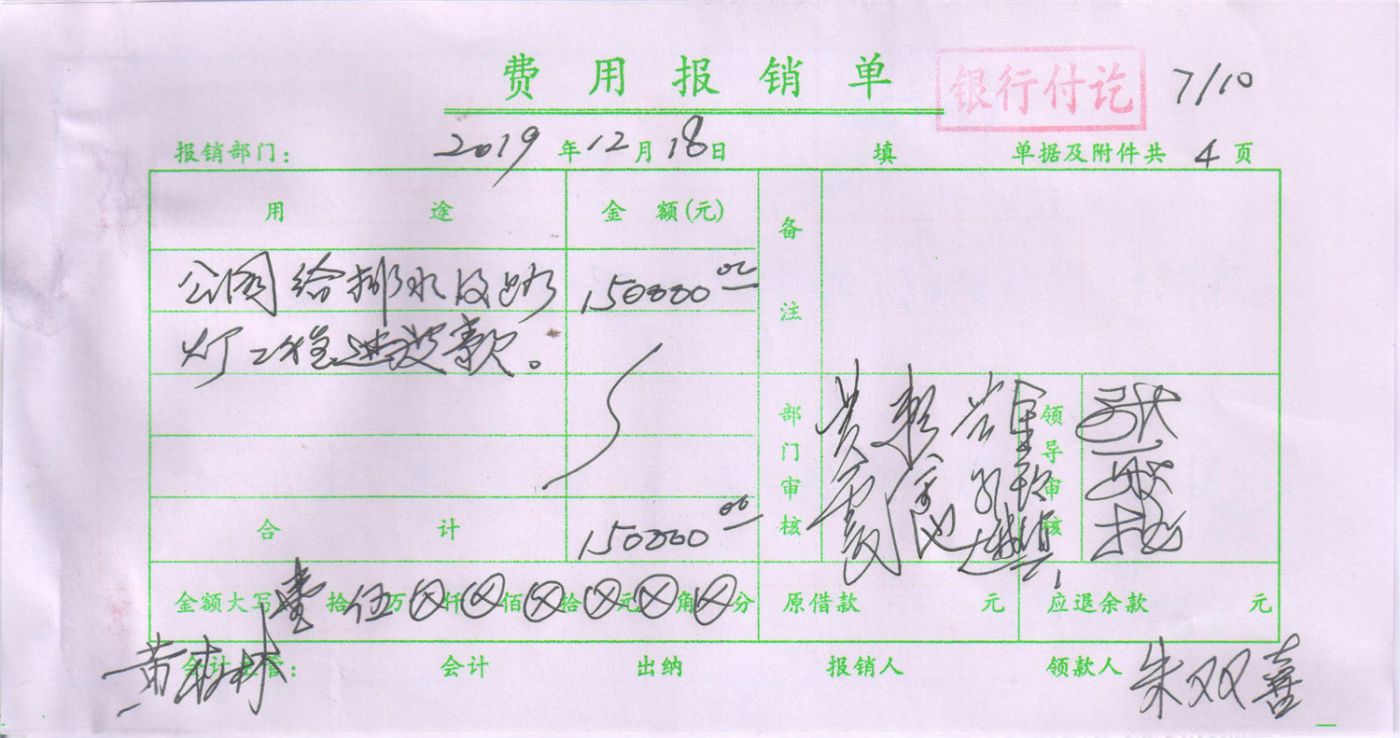 费用报销单 银行付讫 7/10
报销部门: 2019年12月18日 填 单据及附件共4页
用途 金额(元) 备注
公园给排水及路 150000 00
灯工程进度款。
部门审核 领导审核
合计 150000 00
金额大写 壹拾伍万⊗仟⊗佰⊗拾⊗元⊗角⊗分 原借款 元 应退余款 元
会计主管: 会计 出纳 报销人 领款人 朱双喜